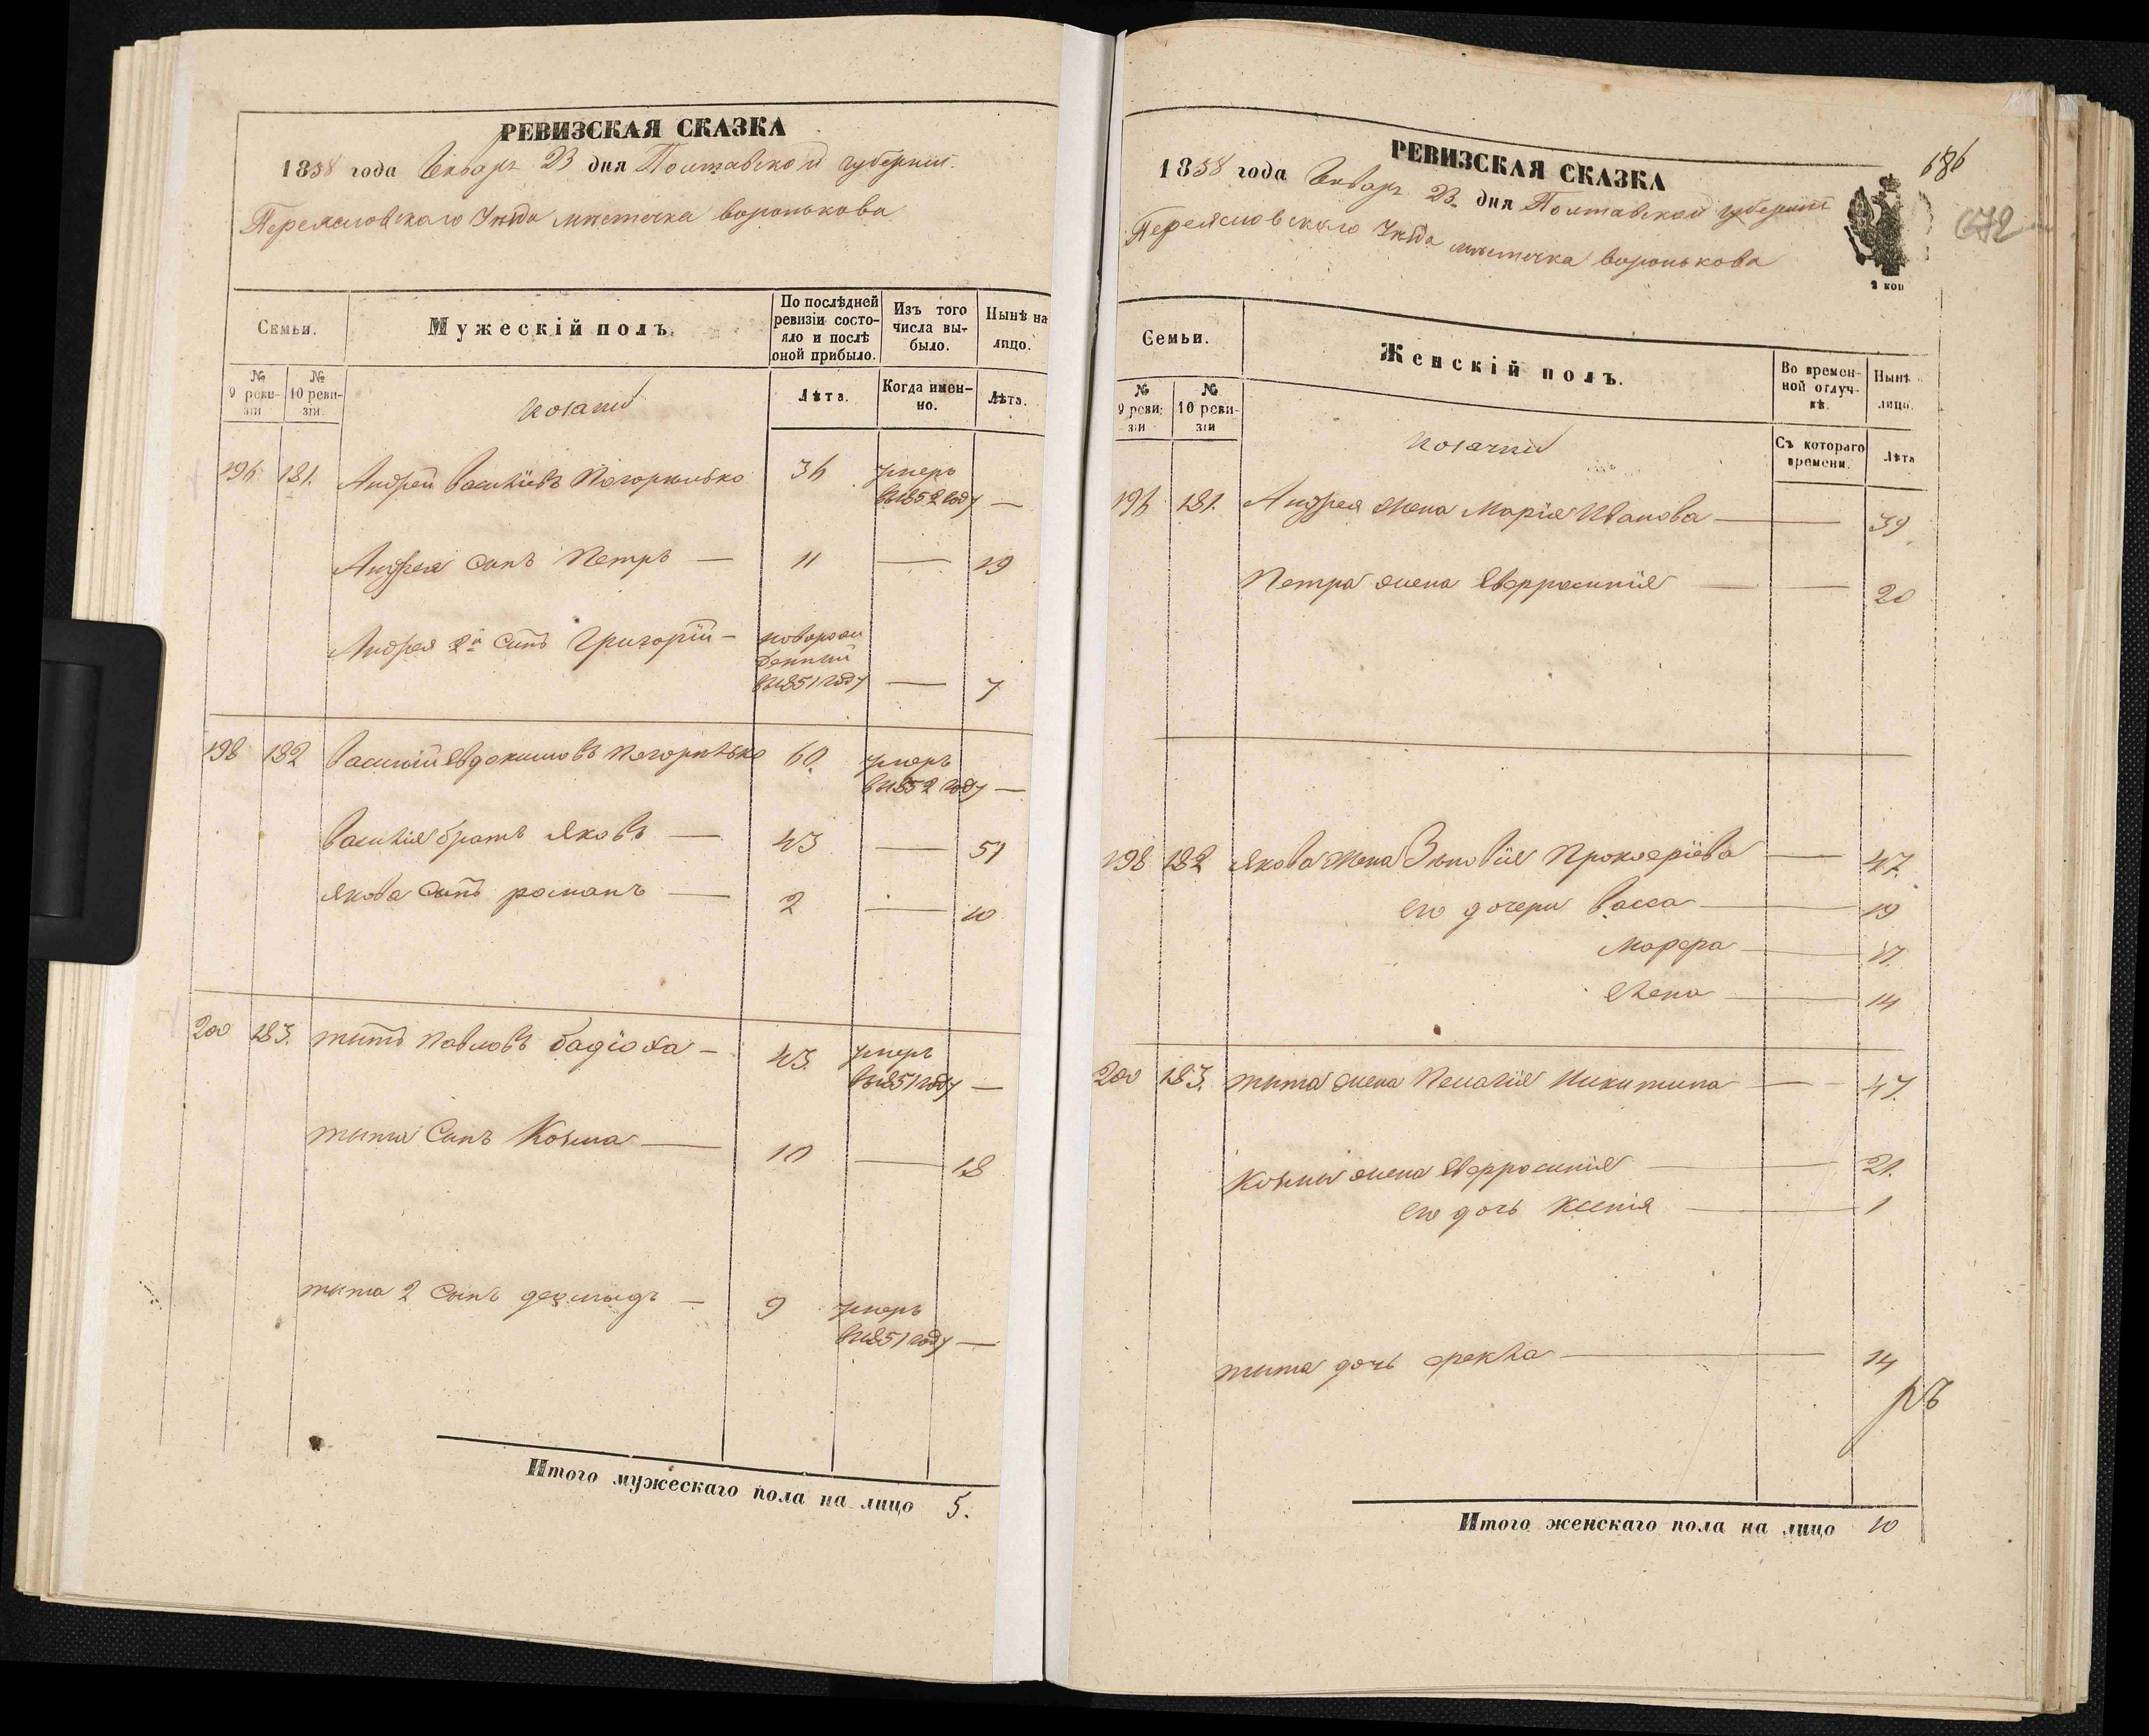 РЕВИЗСКАЯ СКАЗКА
1858 года Января 23 дня Полтавской губерніи
Переясловскаго Уезда местечка воронькова
Семьи.
Мужескій полъ.
По послѣдней ревизіи состояло и послѣ оной прибыло.
Изъ того числа выбыло.
Нынѣ на лицо.
№ 9 ревизіи
№ 10 ревизіи.
козаки
Лѣта.
Когда именно.
Лѣта.
196 181. Андрей Васильевъ Погорелько 36 умеръ
в 1852 году —
Андрея сынъ Петръ — 11 — 19
Андрея 2й сынъ Григорій — новорож
денный
в 1851 году — 7
198 182 Василій Евдокимовъ Погорелько 60. умеръ
в 1852 году —
Василія братъ Яковъ — 43 — 51
Якова сынъ романъ — 2 — 10
200 183. титъ Павловъ — 43. умеръ
въ 1851 году —
тита Сынъ Козма — 10 — 18
тита 2 Сынъ — 9 умеръ
в 1851 году —
Итого мужескаго пола на лицо 5.
РЕВИЗСКАЯ СКАЗКА
686
1858 года Января 23. дня Полтавской губерніи
672
Переясловскаго Уезда местечка воронькова
2 коп
Семьи.
Женскій полъ.
Во временной отлучкѣ.
Нынѣ лицо.
№ 9 ревизіи
№ 10 ревизіи
козачки
Съ котораго времени.
Лѣта
196 181. Андрея жена Марія Иванова — — 39
Петра жена Евфросинія — — 20
198 182 Якова жена Зиновія Прокофіева — 47.
его дочери Васса — 19
Марфа — 17.
Елена — 14
200 183. тита жена Пелагія Никитина — — 47.
Козмы жена Евфросинія — 21.
его дочь Ксенія — 1
тита дочь фекла — 14
Итого женскаго пола на лицо 10